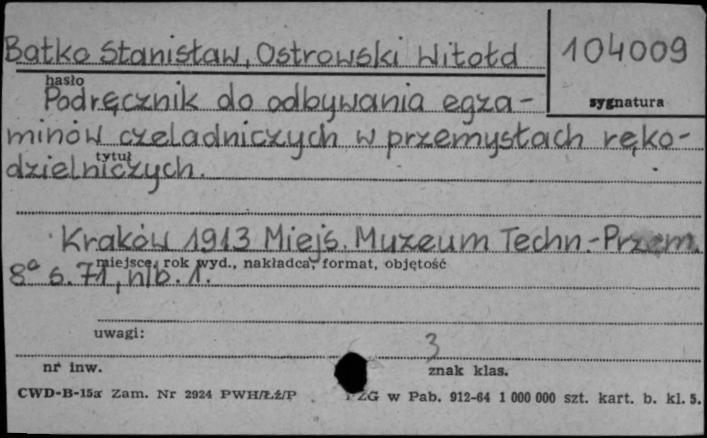 Batko Stanisław, Ostrowski Witołd
104009
hasło
sygnatura
Podręcznik do odbywania egza-
minów czeladniczych w przemysłach ręko-
tytuł
dzielniczych.
Kraków 1913 Miejs. Muzeum Techn.-Przem.
miejsce, rok wyd., nakładca, format, objętość
8° s. 71, nlb. 1.
uwagi:
3
nr inw.
znak klas.
CWD-B-15a Zam. Nr 2924 PWH/Łź/P
PZG w Pab. 912-64 1 000 000 szt. kart. b. kl. 5.